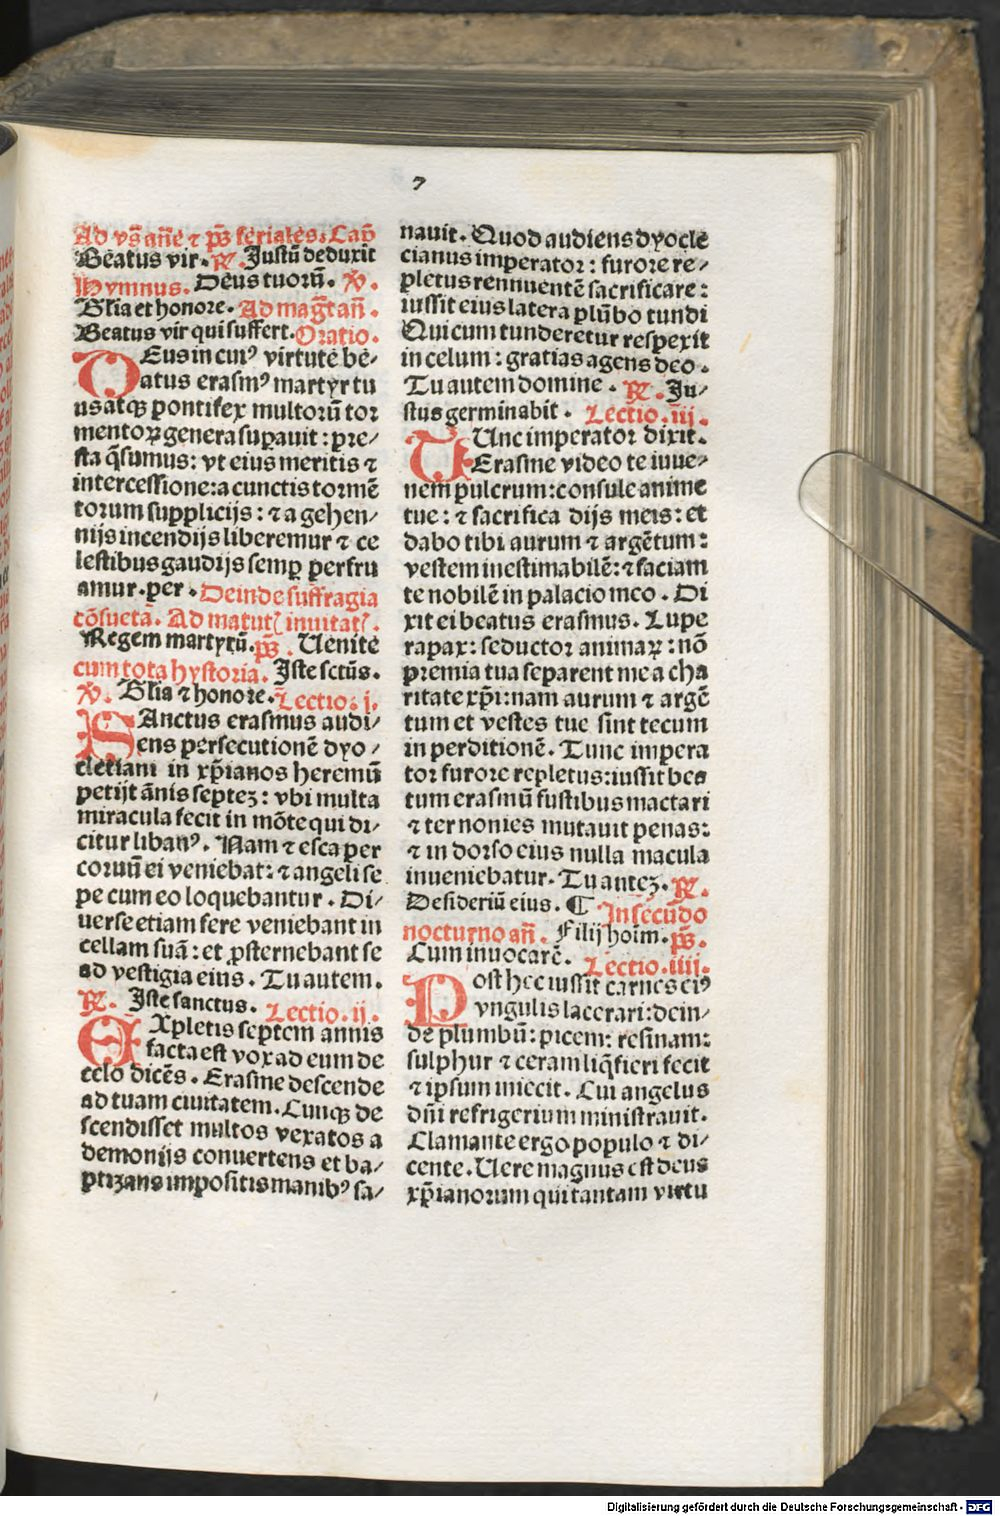 7
Ad vs̄ an̄e ⁊ ps̄ feriales. Cap̄
Beatus vir. ℟. Justū deduxit
Hymnus. Deus tuorū. ℣.
Glia et honore. Ad mag̅t an̄.
Beatus vir qui suffert. Oratio.
DEus in cui⁹ virtute be-
atus erasm⁹ martyr tu
us atq̧ pontifex multorū tor
mentoꝝ genera suꝑauit: pre/
sta q̄sumus: vt eius meritis ⁊
intercessione: a cunctis tormē
torum supplicijs: ⁊ a gehen/
nijs incendijs liberemur ⁊ ce
lestibus gaudijs semꝑ perfru
amur. per. Deinde suffragia
cōsueta. Ad matut̄ inuitat̄.
Regem martyrū. ps̄. Uenite
cum tota hystoria. Iste sctūs.
℣. Glia ⁊ honore. Lectio. j.
SAnctus erasmus audi/
ens persecutionē dyo/
cletiani in xp̄ianos heremū
petijt ānis septeȝ: vbi multa
miracula fecit in mōte qui di/
citur liban⁹. Nam ⁊ esca per
coruū ei veniebat: ⁊ angeli se
pe cum eo loquebantur. Di/
uerse etiam fere veniebant in
cellam suā: et ꝓsternebant se
ad vestigia eius. Tu autem.
℟. Iste sanctus. Lectio. ij.
EXpletis septem annis
facta est vox ad eum de
celo dicēs. Erasme descende
ad tuam ciuitatem. Cunq̧ de
scendisset multos vexatos a
demonijs conuertens et ba/
ptizans impositis manib⁹ sa/
nauit. Quod audiens dyocle
cianus imperator: furore re/
pletus rennuentē sacrificare:
iussit eius latera plūbo tundi
Qui cum tunderetur respexit
in celum: gratias agens deo.
Tu autem domine. ℟. Ju/
stus germinabit. Lectio. iij.
TUnc imperator dixit.
Erasme video te iuue/
nem pulcrum: consule anime
tue: ⁊ sacrifica dijs meis: et
dabo tibi aurum ⁊ argētum:
vestem inestimabilē: ⁊ faciam
te nobilē in palacio meo. Di
xit ei beatus erasmus. Lupe
rapax: seductor animaꝝ: nō
premia tua separent me a cha
ritate xp̄i: nam aurum ⁊ argē
tum et vestes tue sint tecum
in perditionē. Tunc impera
tor furore repletus: iussit bea
tum erasmū fustibus mactari
⁊ ter nonies mutauit penas:
⁊ in dorso eius nulla macula
inueniebatur. Tu auteȝ. ℟.
Desideriū eius. ¶ In secūdo
nocturno an̄. Filij hoim̄. ps̄.
Cum inuocarē. Lectio. iiij.
POst hec iussit carnes ei⁹
vngulis lacerari: dein/
de plumbū: picem: resinam:
sulphur ⁊ ceram liq̄fieri fecit
⁊ ipsum iniecit. Cui angelus
dn̄i refrigerium ministrauit.
Clamante ergo populo ⁊ di/
cente. Uere magnus est deus
xp̄ianorum qui tantam virtu
Digitalisierung gefördert durch die Deutsche Forschungsgemeinschaft - DFG